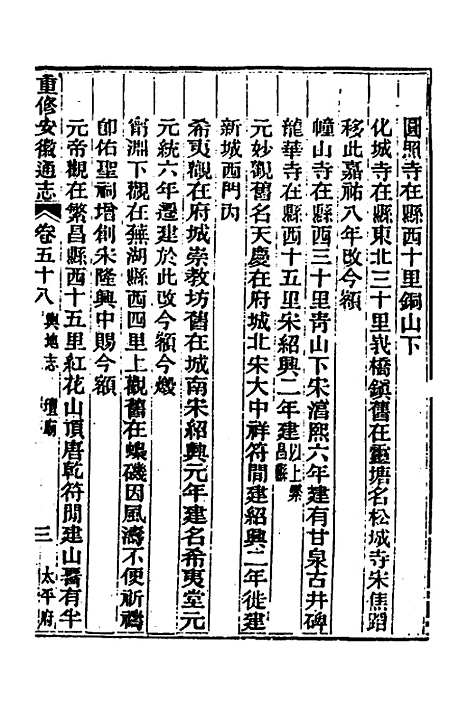 圓照寺在縣西十里銅山下
化城寺在縣東北三十里峩橋鎮舊在靈塘名松城寺朱焦蹈
移此嘉祐八年改今額
幢山寺在縣西三十里靑山下宋湻熙六年建有甘泉古井碑
龍華寺在縣西十五里宋紹興二年建以上繁昌縣
元妙觀舊名天慶在府城北宋大中祥符間建紹興二年徙建
新城西門內
希夷觀在府城崇教坊舊在城南宋紹興元年建名希夷堂元
元統六年遷建於此改今額今燬
甯淵下觀在蕪湖縣西四里上觀舊在蟂磯因風濤不便祈禱
卽佑聖祠增創宋隆興中賜今額
元帝觀在繁昌縣西十五里紅花山頂唐乾符間建山麝有半
重修安徽通志 卷五十八 輿地志 壇廟 三 太平府